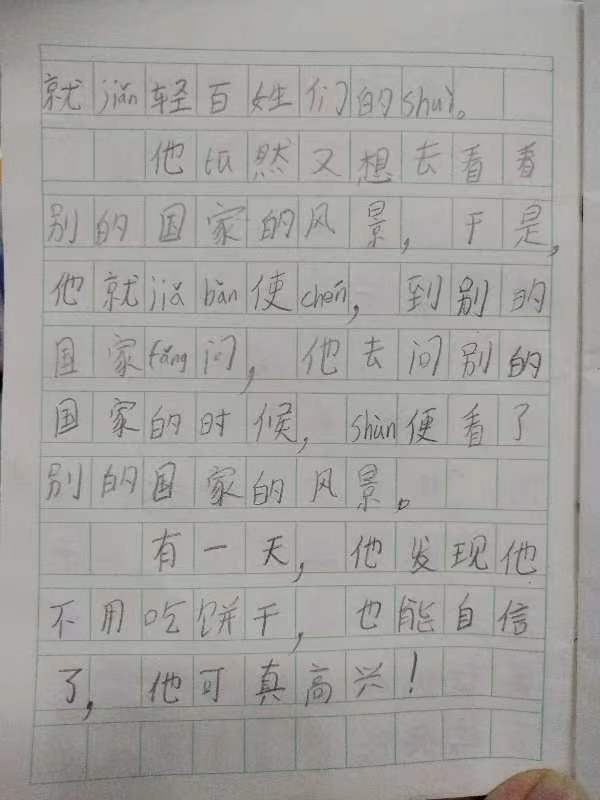 就jiǎn轻百姓们的shuì。
他tū然又想去看看
别的国家的风景，于是，
他就jiǎ bàn使chén，到别的
国家fǎng问，他去问别的
国家的时候，shùn便看了
别的国家的风景。
有一天，他发现他
不用吃饼干，也能自信
了，他可真高兴！